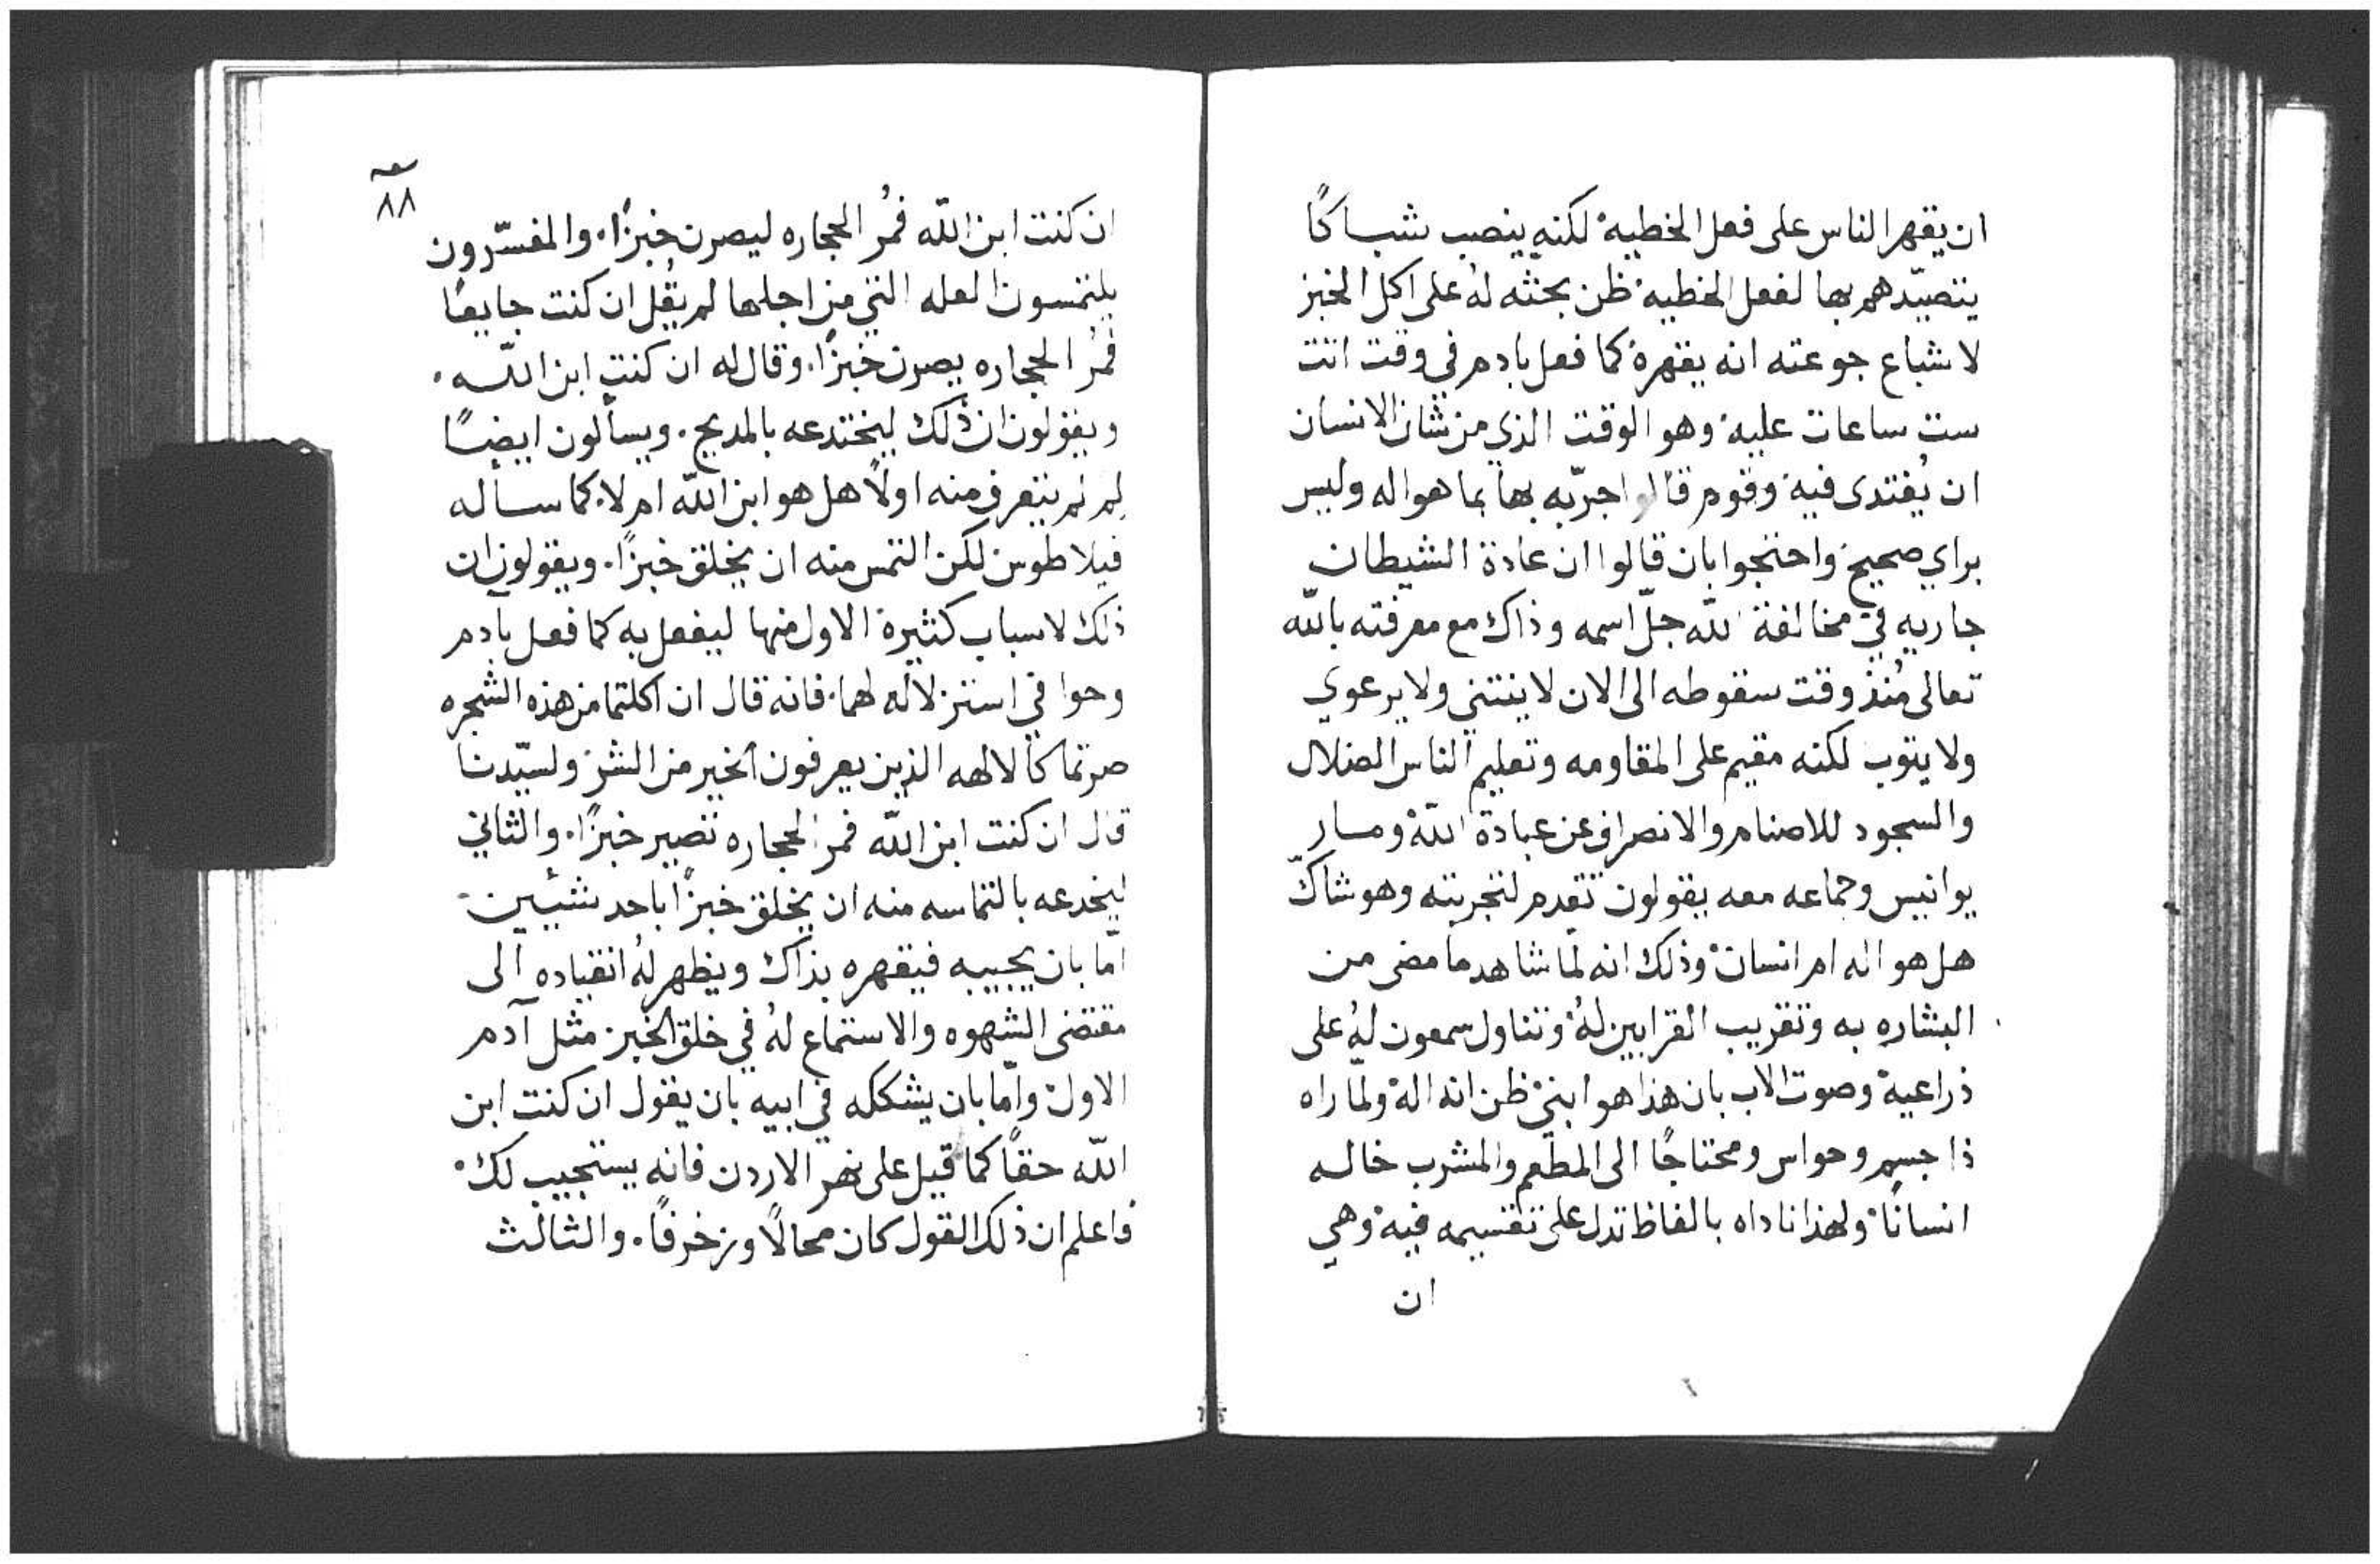 ان يقهر الناس على فعل الخطيه لكنه ينصب شباكًا
يتصيّدهم بها لفعل الخطيه ظن بحثه لهُ على اكل الخبز
لاشباع جوعته انه يقهره كما فعل بادم في وقت اتت
ست ساعات عليه وهو الوقت الذي من شان الانسان
ان يُغتدى فيه وقوم قالوا جرّبه بها بما هو اله وليس
براي صحيح واحتجوا بان قالوا ان عادة الشيطان
جاريه في مخالفة الله جلّ اسمه وذاك مع معرفته بالله
تعالى مُنذ وقت سقوطه الى الان لا ينثني ولا يرعوي
ولا يتوب لكنه مقيم على المقاومه وتعليم الناس الضلال
والسجود للاصنام والانصراف عن عبادة الله ومار
يوانيس وجماعه معه يقولون تقدم لتجربته وهو شاكّ
هل هو اله ام انسان وذلك انه لمّا شاهد ما مضى من
البشاره به وتقريب القرابين لهُ وتناول سمعون لهُ على
ذراعيه وصوت الاب بان هذا هو ابني ظن انه اله ولمّا راه
ذا جسم وحواس ومحتاجًا الى المطعم والمشرب خاله
انسانًا ولهذا ناداه بالفاظ تدل على تقسيمه فيه وهي
ان
٨٨
ان كنت ابن الله فمُر الحجاره ليصرن خبزًا. والمفسّرون
يلتمسون العله التي من اجلها لم يقُل ان كنت جايعًا
فمُر الحجاره يصرن خبزًا. وقال له ان كنت ابن الله.
ويقولون ان ذلك ليختدعه بالمديح. ويسألون ايضًا
لِم لم يتعرف منه اولًا هل هو ابن الله ام لا. كما سأله
فيلاطوس لكن التمس منه ان يخلق خبزًا. ويقولون ان
ذلك لاسباب كثيرة الاول منها ليفعل به كما فعل بآدم
وحوا في استزلاله لهما. فانه قال ان اكلتما من هذه الشجره
صرتما كالالهه الذين يعرفون الخير من الشر ولسيّدنا
قال ان كنت ابن الله فمر الحجاره تصير خبزًا. والثاني
ليخدعه بالتماسه منه ان يخلق خبزًا باحد شيئين
امّا بان يجيبه فيقهره بذاك ويظهر لهُ انقياده الى
مقتضى الشهوه والاستماع لهُ في خلق الخبز مثل آدم
الاول وامّا بان يشككه في ابيه بان يقول ان كنت ابن
الله حقًا كما قيل على نهر الاردن فانه يستجيب لك.
فاعلم ان ذلك القول كان محالًا وزخرفًا. والثالث